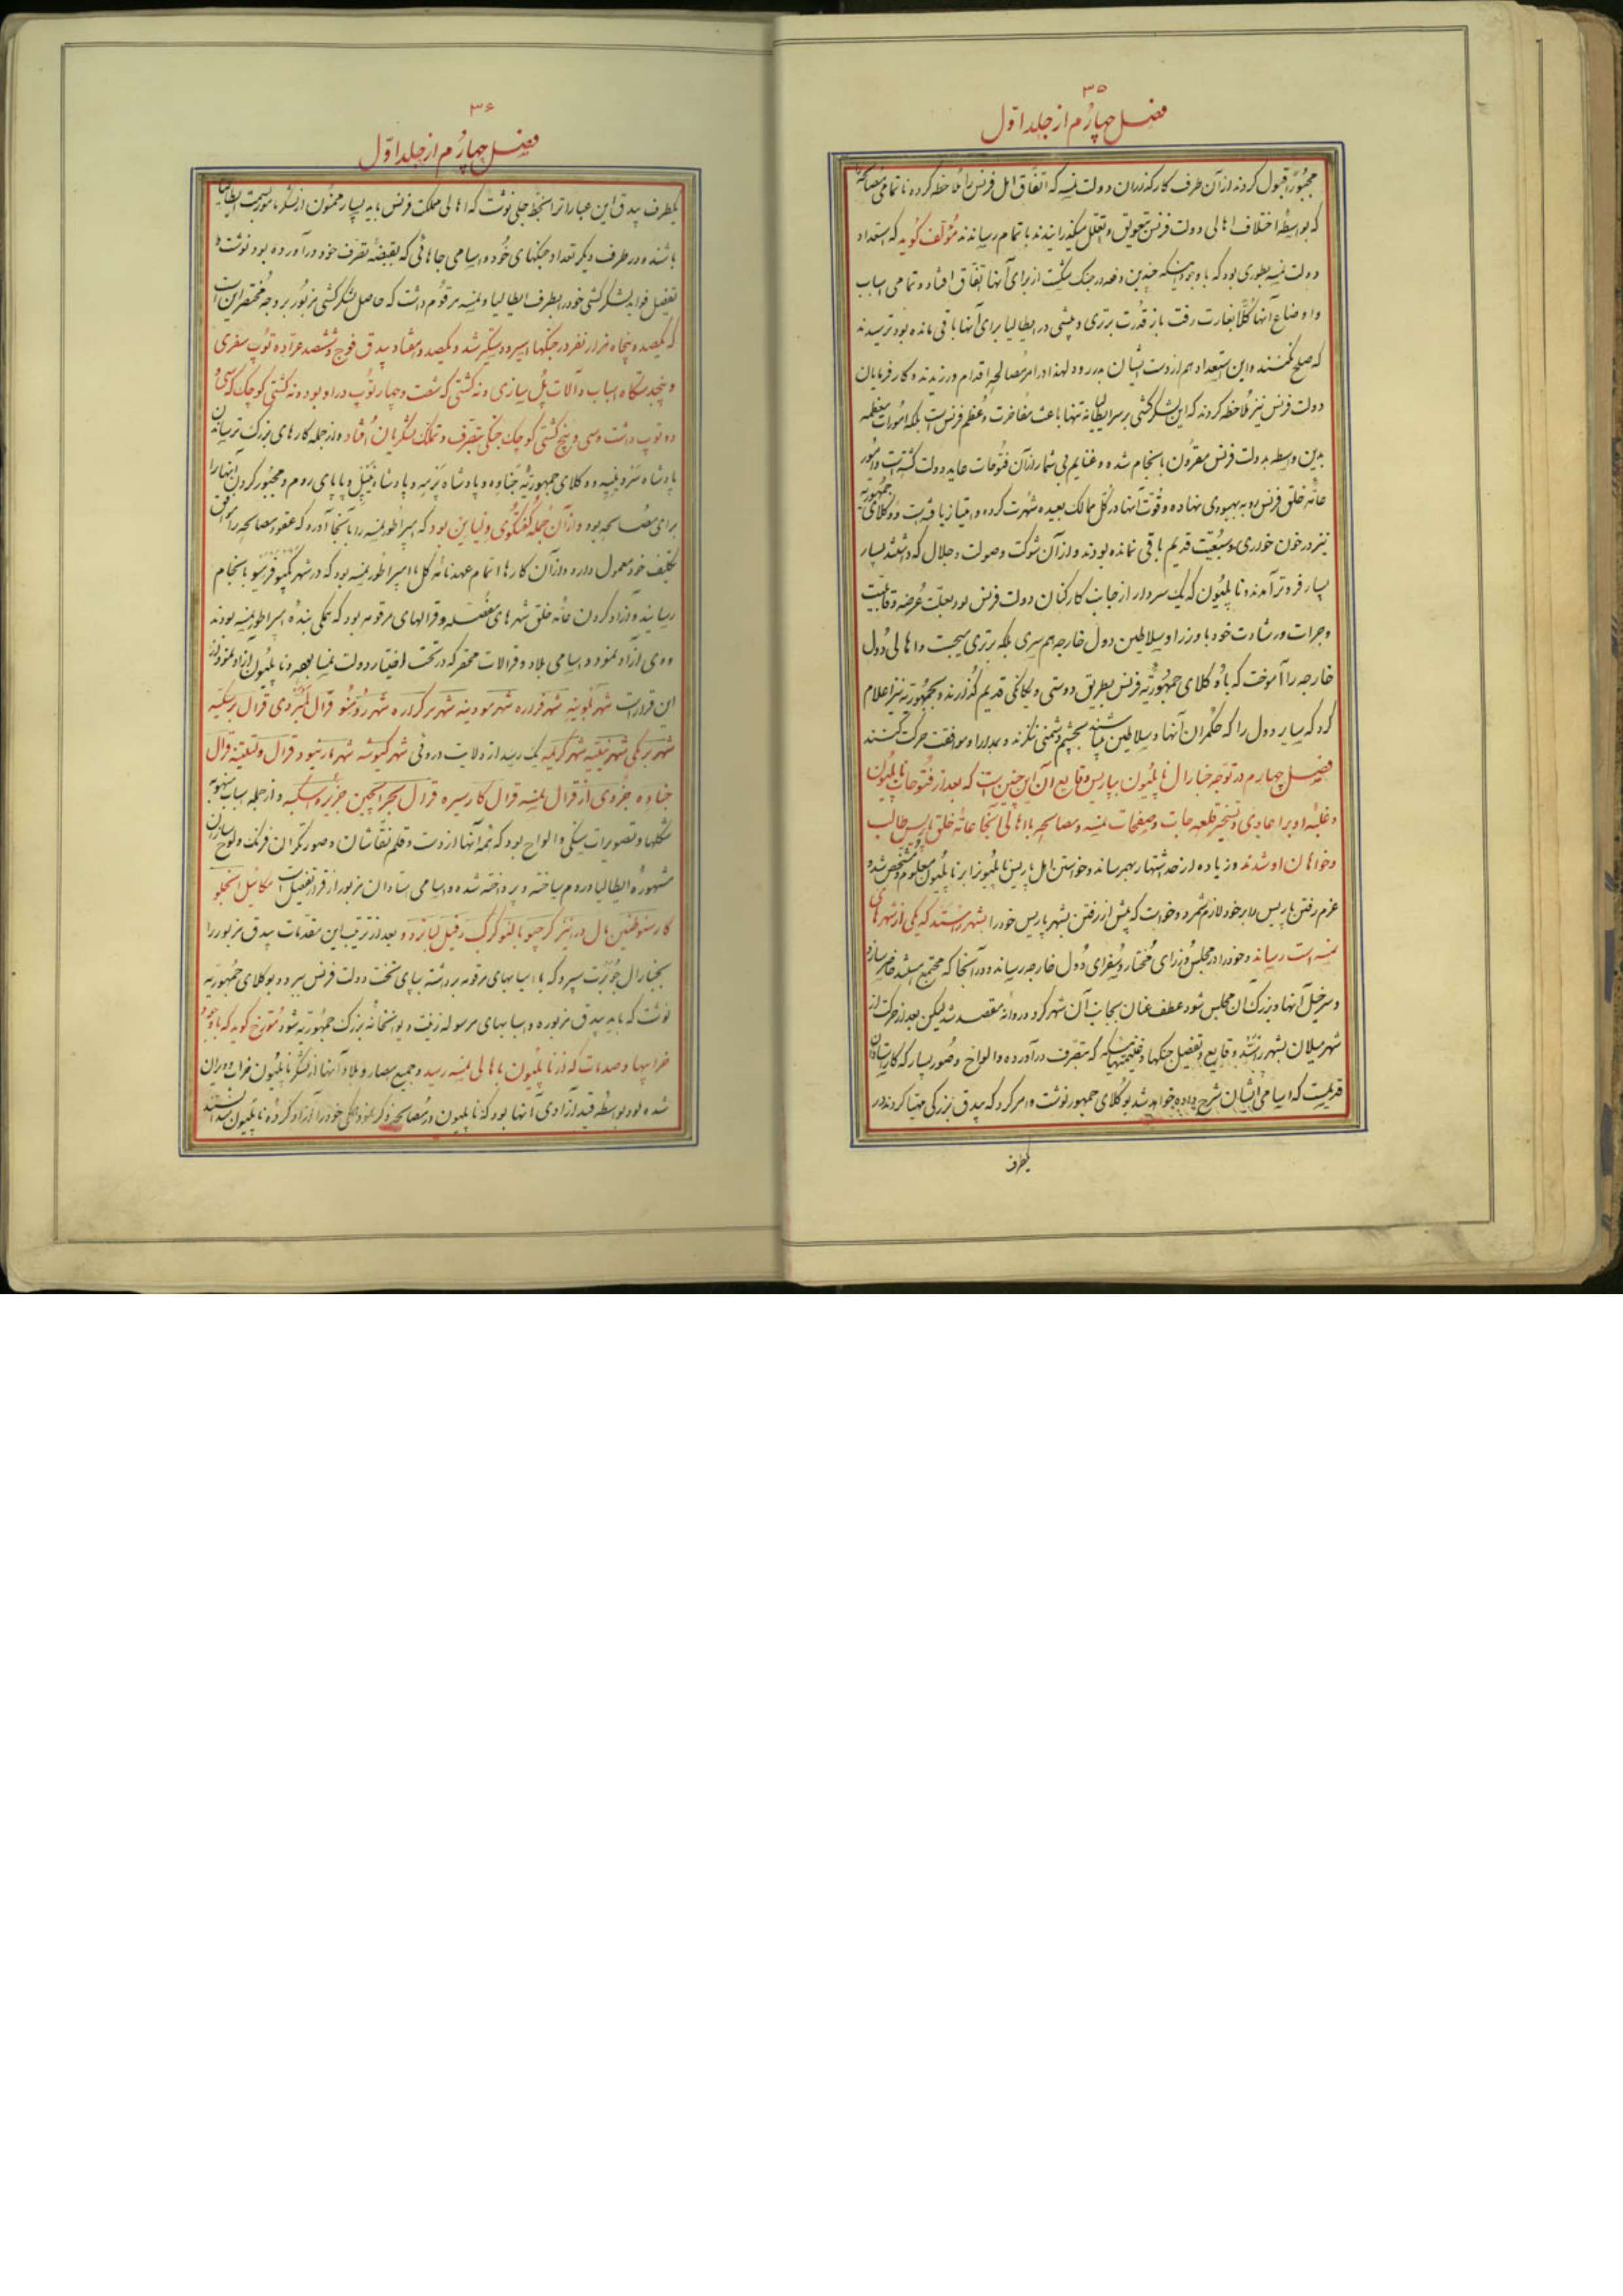 ۳۵
فصل چهارم از جلد اول
مجبوراً قبول کردند از آن طرف کارگذاران دولت نمسه که اتفاق اهل فرنس را ملاحظه کرده تا تمامی مصالحه
که بواسطه اختلاف اهالی دولت فرنس بتعویق و تعلل میگذرانیدند باتمام رسانیدند مؤلف گوید که استعداد
دولت نمسه بطوری بود که با وجود اینکه چندین دفعه در جنگ شکست از برای آنها اتفاق افتاد و تمامی اسباب
و اوضاع آنها کلاً بغارت رفت باز قدرت برتری و بیشی در ایطالیا برای آنها باقی مانده بود ترسیدند
که صلح نکنند و این استعداد هم از دست ایشان بدر رود لهذا در امر مصالحه اقدام ورزیدند و کارفرمایان
دولت فرنس نیز ملاحظه کردند که این لشکرکشی بر سر ایطالیا نه تنها باعث مفاخرت و عظم فرنس است بلکه امورات معظمه
بدین واسطه بدولت فرنس مقرون بانجام شده و غنایم بی شمار از آن فتوحات عاید دولت گشته است و امور
عامه خلق فرنس رو به بهبودی نهاده و قوت آنها در کل ممالک بعیده شهرت کرده و امتیاز یافته است و وکلای جمهوریه
نیز در خون خواری و سبعیت قدیم باقی نمانده بودند و از آن شوکت و صولت و جلال که داشتند بسیار
بسیار فروتر آمدند و ناپلیون که یک سردار از جانب کارکنان دولت فرنس بود بعلت عرضه و قابلیت
و جرات و رشادت خود با وزرا و سلاطین دول خارجه هم سری بلکه برتری میجست و اهالی دول
خارجه را آموخت که با وکلای جمهوریه فرنس بطریق دوستی و یگانگی قدیم گذرانند و بجمهوریه نیز اعلام
کرد که سایر دول را که حکمران آنها سلاطین میباشند بچشم دشمنی ننگرند و بمدارا و موافقت حرکت کنند
فصل چهارم در توجه جنارال ناپلیون بپاریس و وقایع آن این چنین است که بعد از فتوحات ناپلیون
و غلبه او بر اعادی و تسخیر قلعه جات و صفحات نمسه و مصالحه با اهالی آنجا عامه خلق پاریس طالب
و خواهان او شدند و زیاده از حد اشتهار بهمرساند و خواستن اهل پاریس ناپلیون را بر ناپلیون معلوم و مشخص شد و
عزم رفتن پاریس را بر خود لازم شمرد و خواست که پیش از رفتن بشهر پاریس خود را بشهر رشتد که یکی از شهرهای
نمسه است رساند و خود را در مجلس وزرای مختار و سفرای دول خارجه رساند و در آنجا که مجتمع میشدند حاضر سازد
و سرخیل آنها و بزرگ آن مجلس شود عطف عنان بجانب آن شهر کرد و روانه مقصد شد لیکن بعد از حرکت از
شهر میلان بشهر رشتد وقایع و تفصیل جنگها و غنیمتهائیکه بتصرف درآورده و الواح و صور بسیار که کار استادان
قدیمست که اسامی ایشان شرح داده خواهد شد بوکلای جمهور نوشت و امر کرد که بیدق بزرگی مهیا کردند در
یکطرف
۳۶
فصل چهارم از جلد اول
یکطرف بیدق این عبارات را بخط جلی نوشت که اهالی مملکت فرنس باید بسیار ممنون از لشکر مأمور بسمت ایطالیا
باشند و در طرف دیگر تعداد جنگهای خود و اسامی جاهائی که بقبضه تصرف خود درآورده بود نوشت و
تفصیل فواید لشکرکشی خود را بطرف ایطالیا و نمسه مرقوم داشت که حاصل لشکرکشی مزبور بر وجه مختصر این است
که یکصد و پنجاه هزار نفر در جنگها اسیر و دستگیر شد و یکصد و هفتاد بیدق فوج و ششصد عراده توپ سفری
و پنج دستگاه اسباب و آلات پل سازی و نه کشتی که شصت و چهار توپ در او بود و نه کشتی کوچک که سی و
دو توپ داشت و سی و پنج کشتی کوچک جنگی بتصرف و تملک لشکریان افتاد و از جمله کارهای بزرگ ترسانیدن
پادشاه سردینیه و وکلای جمهوریه جناوه و پادشاه پرمه و پادشاه نیپل و پاپای روم و مجبور کردن اینها را
برای مصالحه بود و از آن جمله گفتگوی ونیا این بود که امپراطور نمسه را بآنجا آورد که عقود مصالحه را موافق
تکلیف خود معمول دارد و از آن کارها اتمام عهدنامه کل با امپراطور نمسه بود که در شهر کمپو فرمیو بانجام
رسانید و آزاد کردن عامه خلق شهرهای مفصله و قرالهای مرقومه بود که همگی بنده امپراطور نمسه بودند
و وی آزاد نمود و اسامی بلاد و قرالات محقر که در تحت اختیار دولت نمسا بود و ناپلیون آزاد نمود از
این قرار است شهر بلونیه شهر فراره شهر مودینه شهر کراره شهر رومنو قرال لمبردی قرال برسکیه
شهر برکمی شهر نیتیه شهر کریمه یک رسد از ولایت درونی شهر کیوشه شهر بارنیو و قرال ولتلینه قرال
جناوه جزوی از قرال نمسه قرال کارسیره قرال بحر ایجین جزیره اسکیه و از جمله اسباب منهوبه
شکلها و تصویرات سنگی و الواح بود که همه آنها از دست و قلم نقاشان و صورتگران فرنگ و لوح سازان
مشهوره ایطالیا و روم ساخته و پرداخته شده و اسامی استادان مزبور از قرار تفصیل است مکائیل انجلو
کارسنو طنین پال ورانیز کرجیو بالنو کرک رفیل لیانردو بعد از ترتیب این مقدمات بیدق مزبور را
بجنارال جوبرت سپرد که با اسبابهای مرقومه برداشته بپای تخت دولت فرنس ببرد و بوکلای جمهوریه
نوشت که باید بیدق مزبوره و اسبابهای مرسوله زینت دیوانخانه بزرگ جمهوریه شود مورخ گوید که با وجود
خرابیها و صدمات که از ناپلیون باهالی نمسه رسید و جمیع حصار و بلاد آنها از لشکر ناپلیون خراب و ویران
شده بود بواسطه قید آزادی آنها بود که ناپلیون در مصالحه ذکر نمود همگی خود را آزاد کرده ناپلیون میدانستند